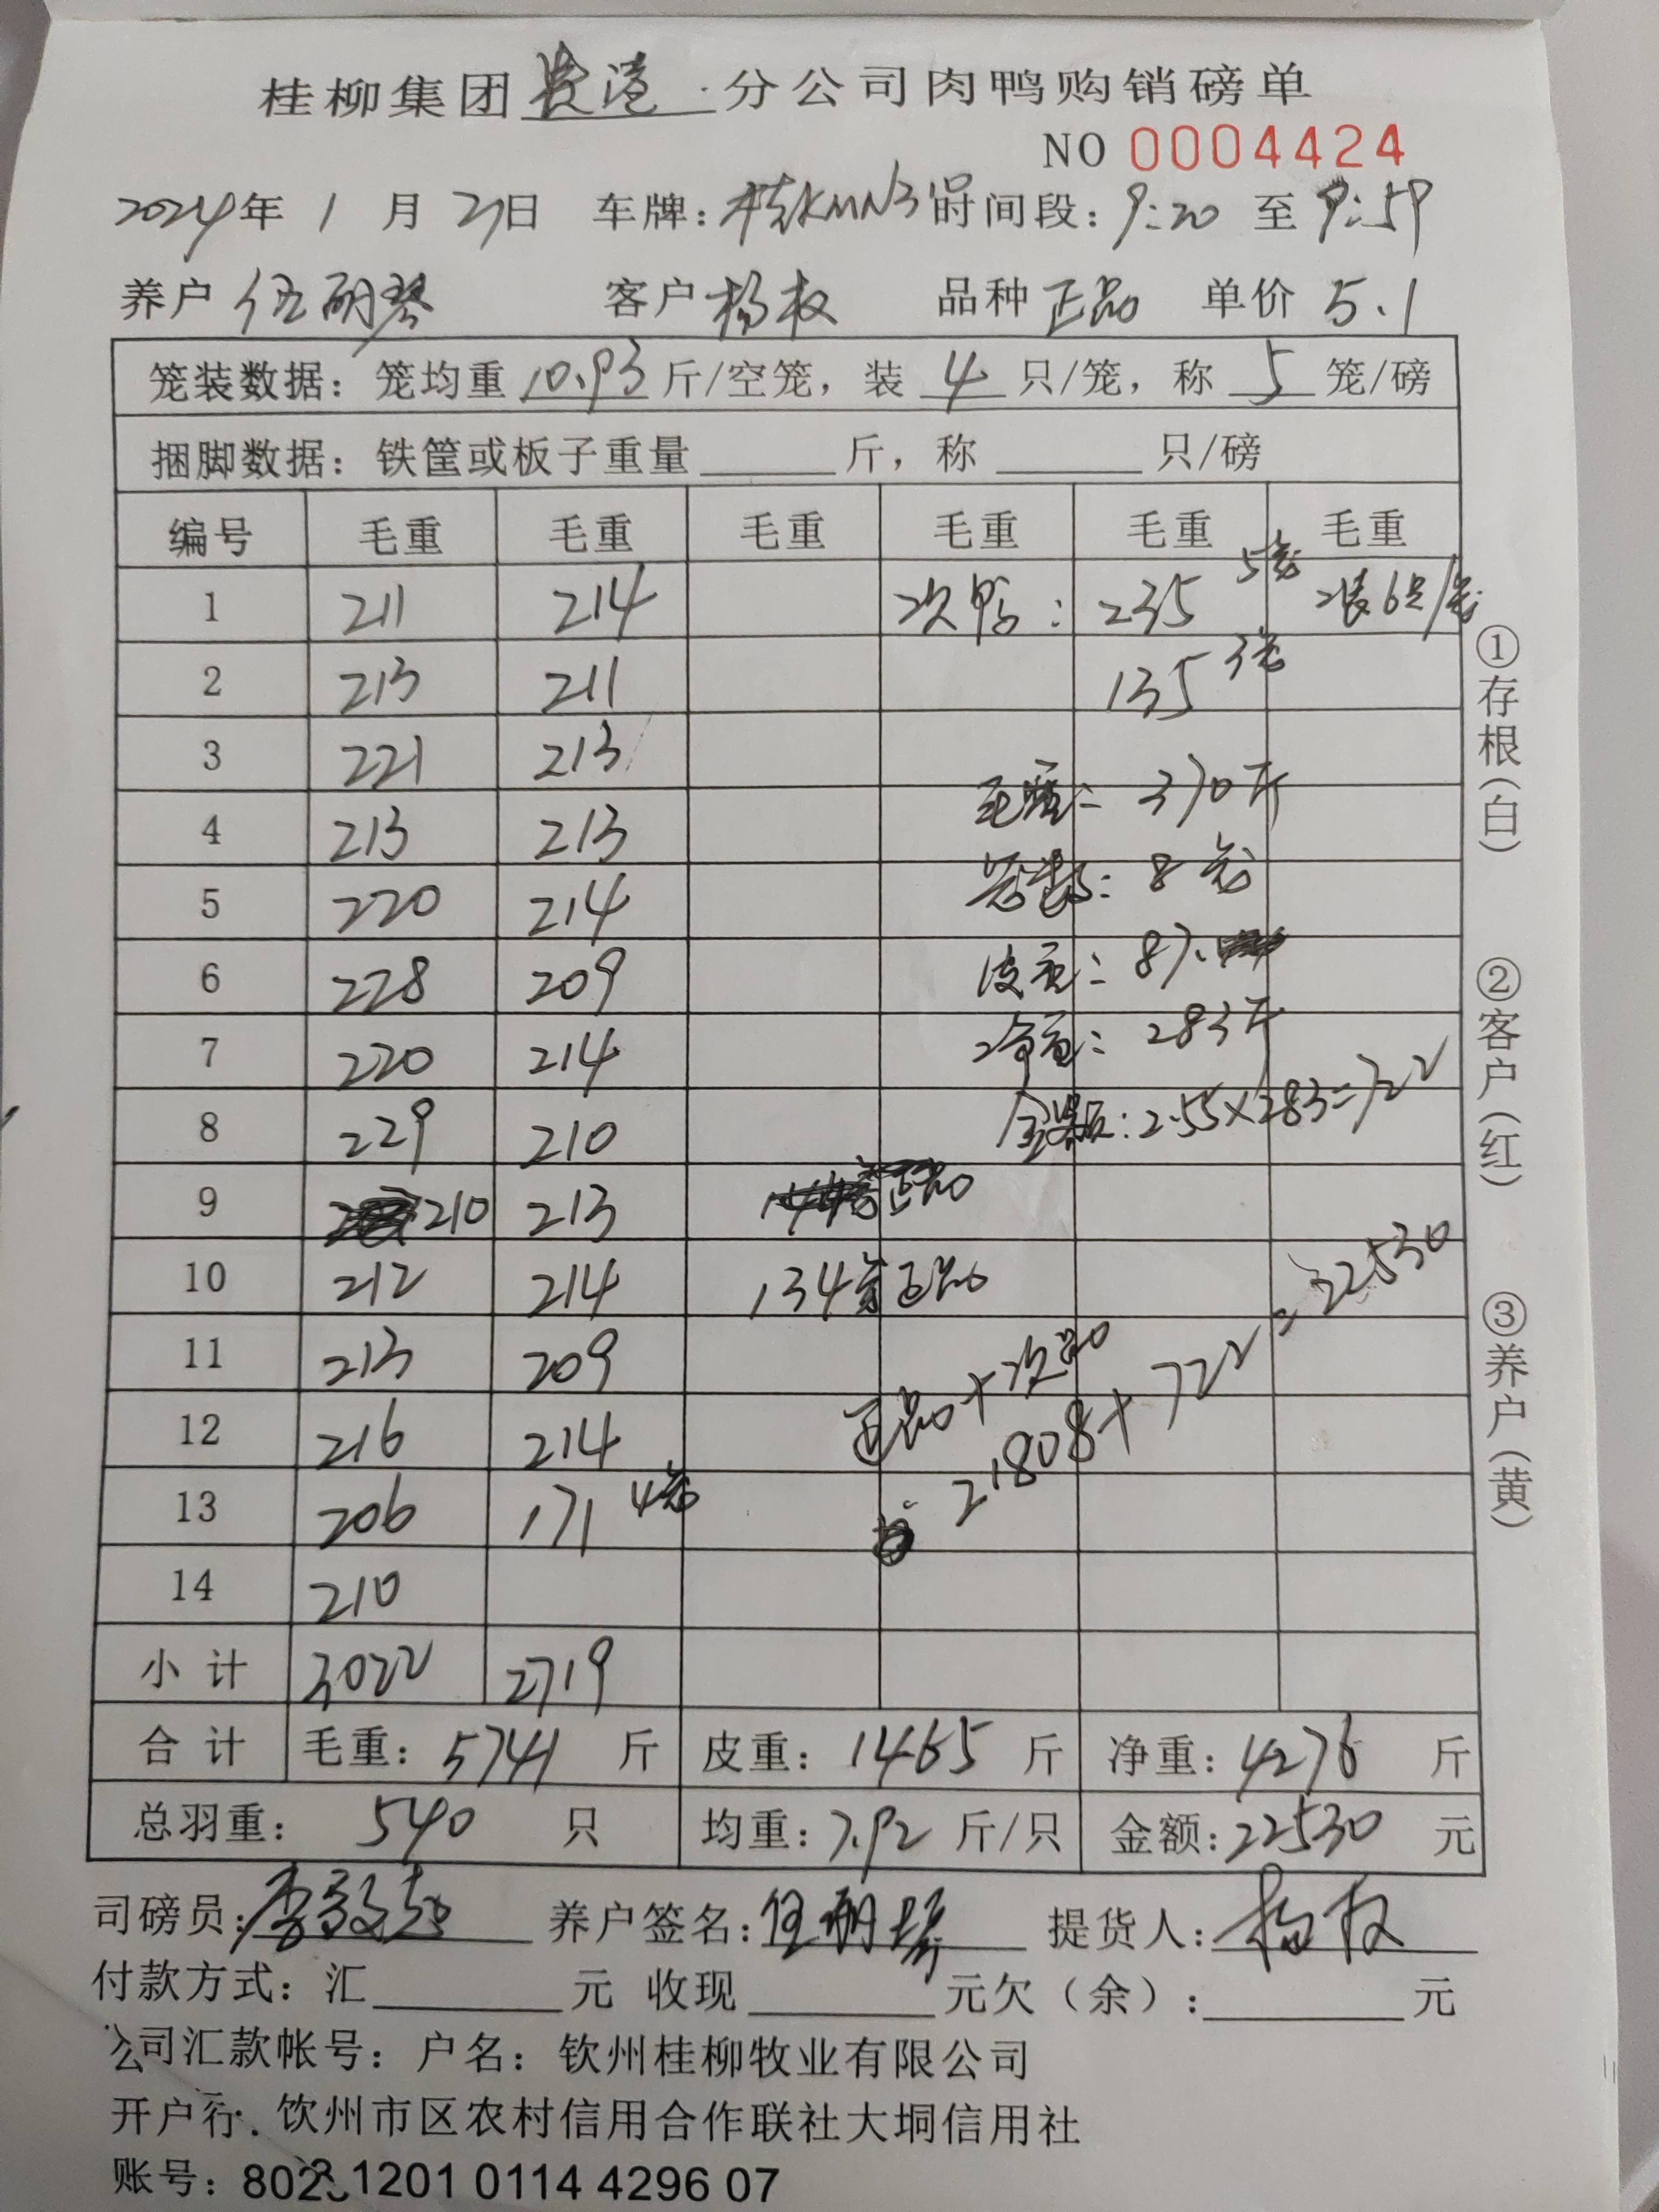 桂柳集团贵港分公司肉鸭购销磅单
NO 0004424
2024年 1 月 21日 车牌：桂KMN3 时间段：9:20 至 9:59
养户 伍丽琴 客户 杨权 品种 正品 单价 5.1
笼装数据：笼均重 10.93 斤/空笼，装 4 只/笼，称 5 笼/磅
捆脚数据：铁筐或板子重量______斤，称______只/磅
编号 毛重 毛重 毛重 毛重 毛重 毛重
1 211 214 次鸭：235 5笼 装6只/笼
2 213 211 135 3笼
3 221 213
4 213 213 毛重：370斤
5 220 214 笼数：8笼
6 228 209 皮重：87.
7 220 214 净重：283斤
8 229 210 金额：2.55×283=722
9 210 213 正品
10 212 214 134笼正品
11 213 209 正品+次品
12 216 214 21808+722=22530
13 206 171 4笼
14 210
小计 3022 2719
合计 毛重：5741 斤 皮重：1465 斤 净重：4276 斤
总羽重：540 只 均重：7.92 斤/只 金额：22530 元
司磅员：李 养户签名：伍丽琴 提货人：杨权
付款方式：汇______元 收现______元欠（余）：______元
公司汇款帐号：户名：钦州桂柳牧业有限公司
开户行：钦州市区农村信用合作联社大垌信用社
账号：8023 1201 0114 4296 07
①存根(白)
②客户(红)
③养户(黄)